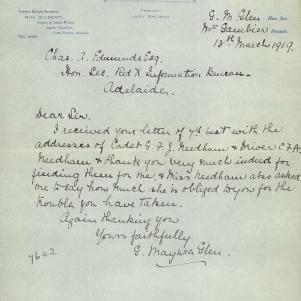 Miss Gilbert,
Lady Galway
G. M. Glen Hon. Sec.
Mt Gambier Branch.
13th March 1919.
Chas. A. Edmunds Esq.
Hon. Sec. Red X. Information Bureau
Adelaide.
Dear Sir,
I received your letter of 7th inst with the
addresses of Cadet G. F. J. Needham & Driver C.F.A.
Needham & thank you very much indeed for
finding them for me, & Miss Needham also asked
me to say how much she is obliged to you for the
trouble you have taken.
Again thanking you
Yours faithfully
G. Maywra Glen.
7642